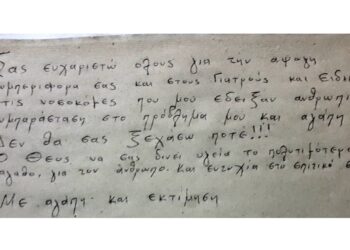 Σας ευχαριστώ ολους για την αψογη
συμπεριφορα σας και στους Γιατρούς και Ειδικ
στις νοσοκομες που μου εδειξαν ανθρωπι
συμπαράσταση στο πρόβλημα μου και αγάπη
Δεν θα σας ξεχάσω ποτέ!!!
Ο Θεος να σας δινει υγεία το πολυτιμότερο
αγαθο, για τον άνθρωπο. Και ευτυχία στο σπιτικο σ
Με αγάπη και εκτίμηση